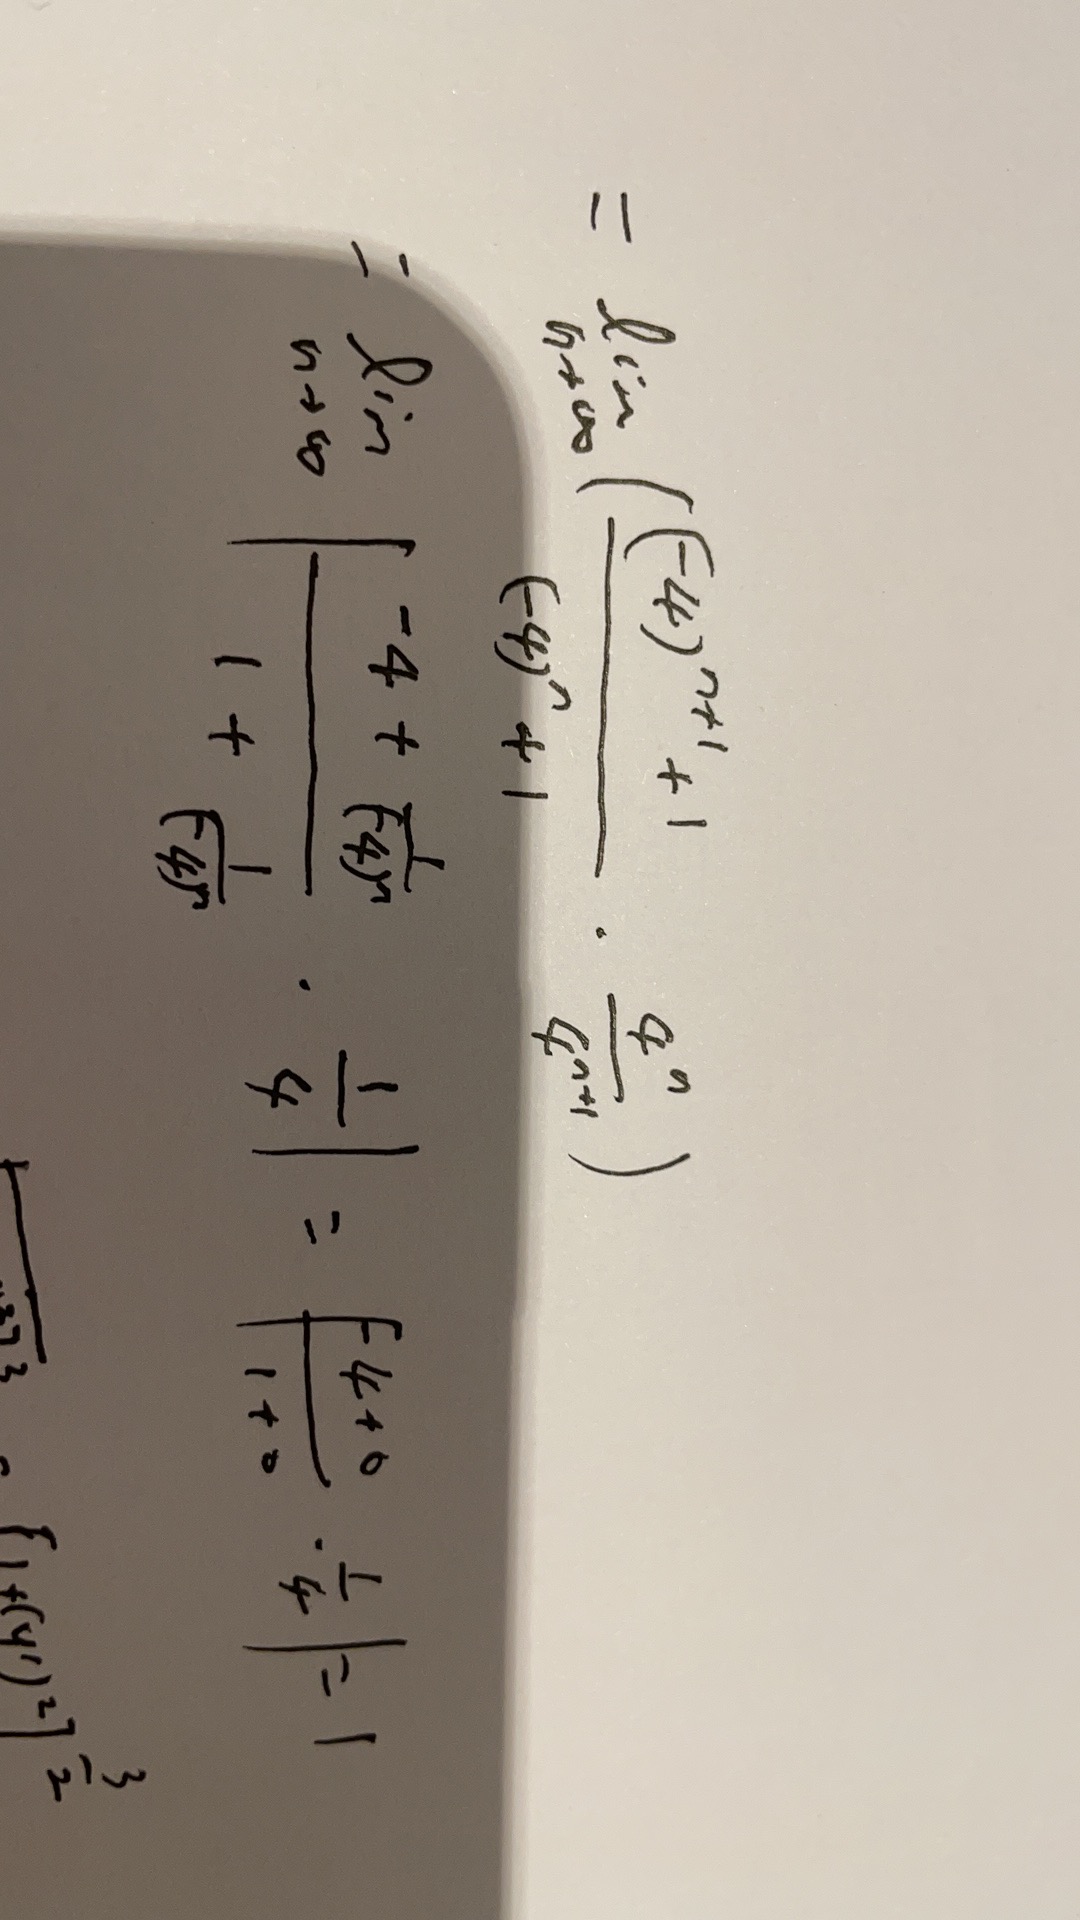 = lim n→∞ ( ((-4)^{n+1} + 1) / ((-4)^n + 1) · 4^n / 4^{n+1} )
= lim n→∞ | (-4 + 1/(-4)^n) / (1 + 1/(-4)^n) · 1/4 | = | (-4+0) / (1+0) · 1/4 | = 1
[1+(y')^2]^{3/2}